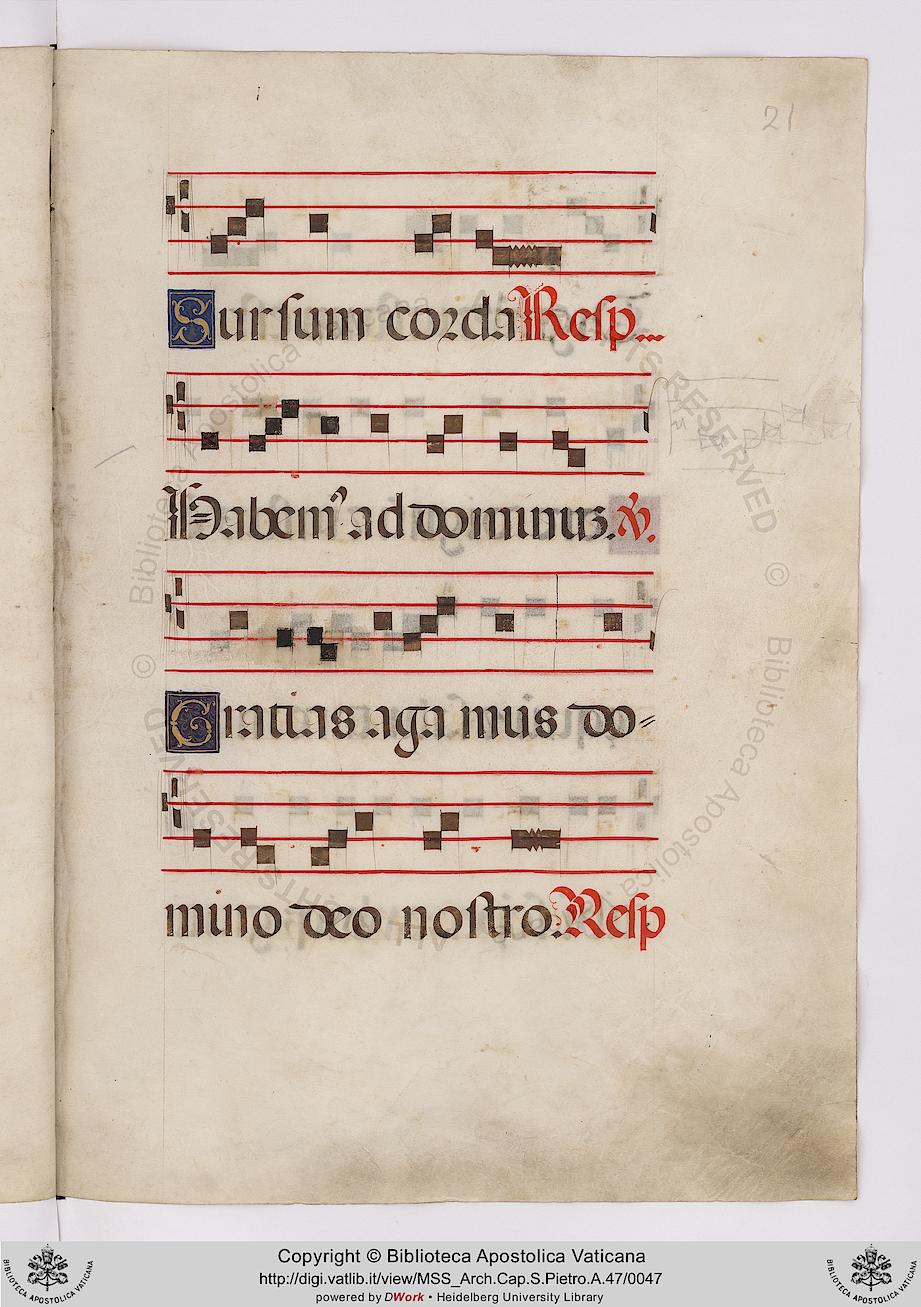 21
Sursum corda Resp...
Habem' ad dominuz. V.
Gratias aga mus do=
mino deo nostro. Resp
Copyright © Biblioteca Apostolica Vaticana
http://digi.vatlib.it/view/MSS_Arch.Cap.S.Pietro.A.47/0047
powered by DWork • Heidelberg University Library
BIBLIOTECA APOSTOLICA VATICANA
BIBLIOTECA APOSTOLICA VATICANA